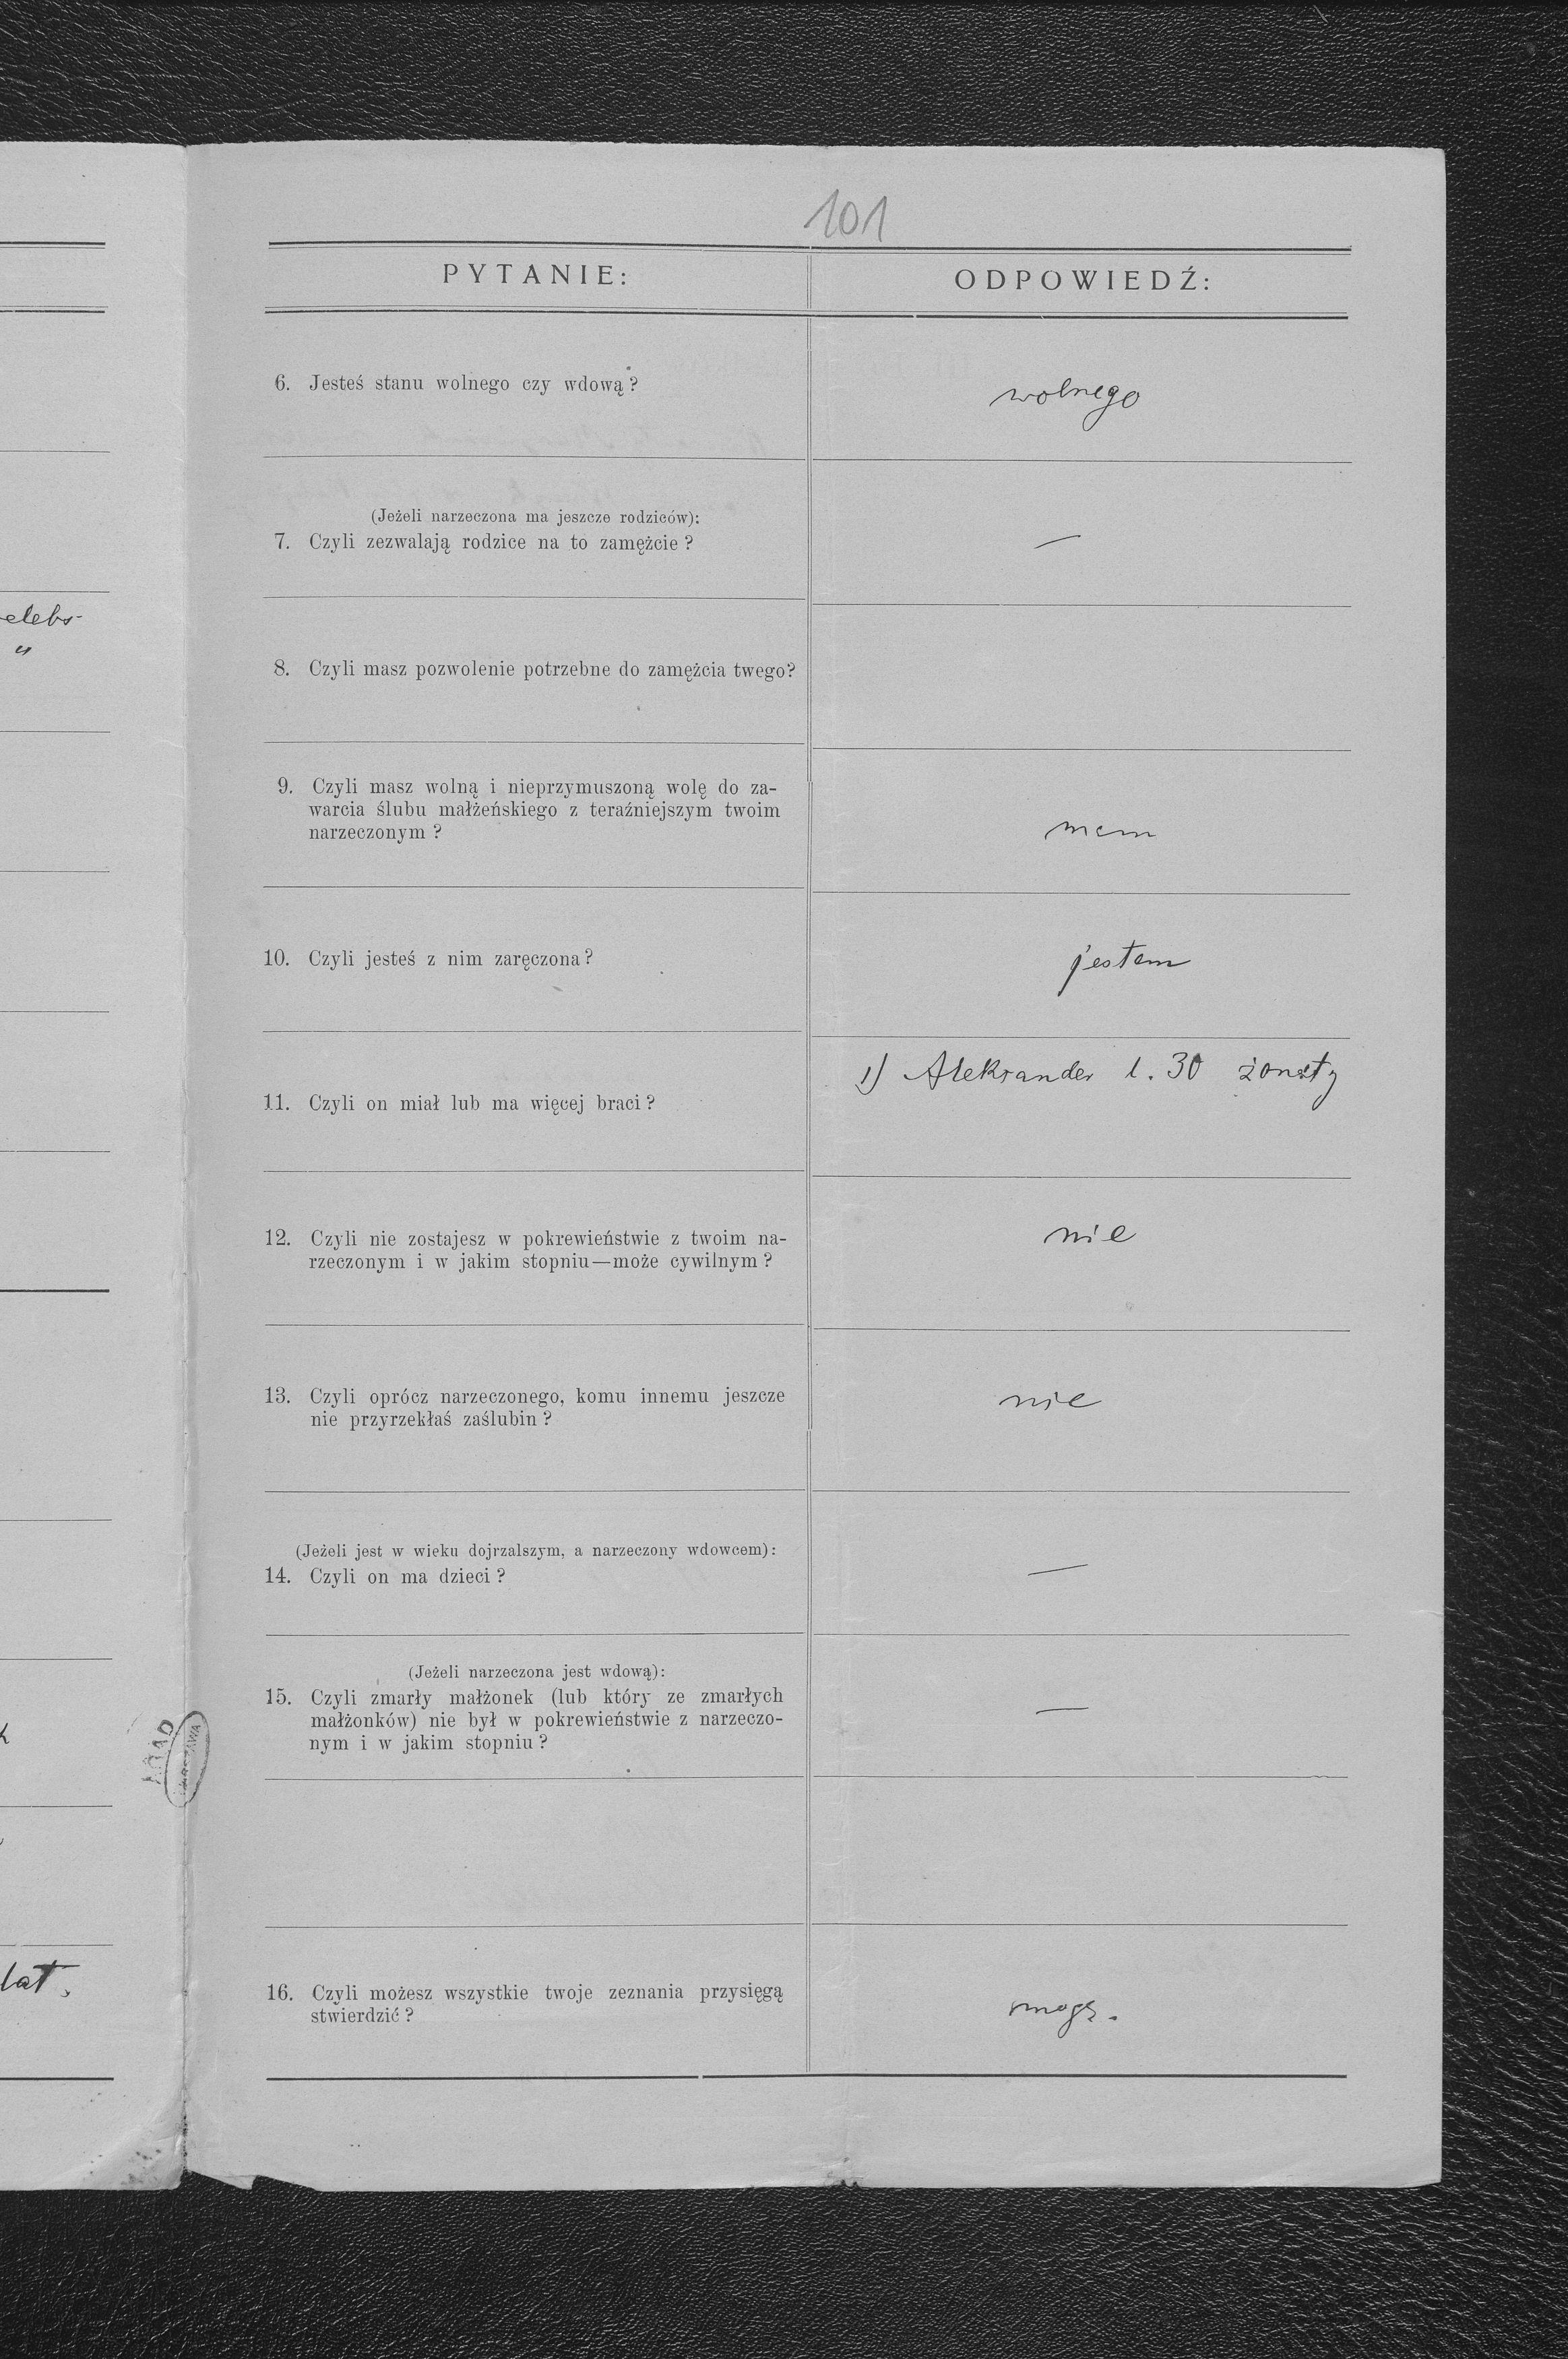 101
PYTANIE: ODPOWIEDŹ:
6. Jesteś stanu wolnego czy wdową? wolnego
(Jeżeli narzeczona ma jeszcze rodziców):
7. Czyli zezwalają rodzice na to zamężcie? —
8. Czyli masz pozwolenie potrzebne do zamężcia twego?
9. Czyli masz wolną i nieprzymuszoną wolę do za-
warcia ślubu małżeńskiego z teraźniejszym twoim
narzeczonym? mam
10. Czyli jesteś z nim zaręczona? jestem
1) Aleksander l. 30 żonaty
11. Czyli on miał lub ma więcej braci?
12. Czyli nie zostajesz w pokrewieństwie z twoim na- nie
rzeczonym i w jakim stopniu—może cywilnym?
13. Czyli oprócz narzeczonego, komu innemu jeszcze nie
nie przyrzekłaś zaślubin?
(Jeżeli jest w wieku dojrzalszym, a narzeczony wdowcem):
14. Czyli on ma dzieci? —
(Jeżeli narzeczona jest wdową):
15. Czyli zmarły małżonek (lub który ze zmarłych
małżonków) nie był w pokrewieństwie z narzeczo- —
nym i w jakim stopniu?
16. Czyli możesz wszystkie twoje zeznania przysięgą
stwierdzić? mogę.
lat,
AGAD
WARSZAWA